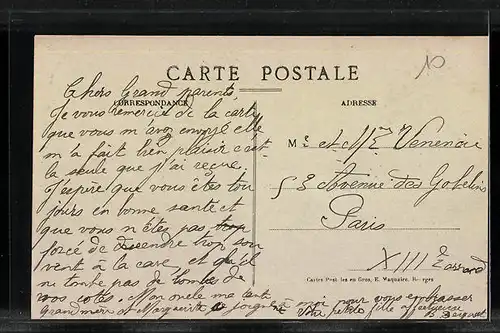 10
CARTE POSTALE
CORRESPONDANCE
ADRESSE
Chers Grand parents,
Je vous remercie de la carte
que vous m'avez envoyé elle
m'a fait bien plaisir c'est
la seule que j'ai reçue.
J'espère que vous êtes tou
jours en bonne santé et
que vous n'êtes pas trop
forcé de descendre trop sou
vent à la cave, et qu'il
ne tombe pas de bombes de
vos côtés. Mon oncle ma tante
Grand mère et Marguerite se joignent à moi pour vous embrasser
Votre petite fille affectueuse
Mr et Mme
53 Avenue des Gobelins
Paris
XIII
Cartes Postales en Gros, E. Maquaire, Bourges